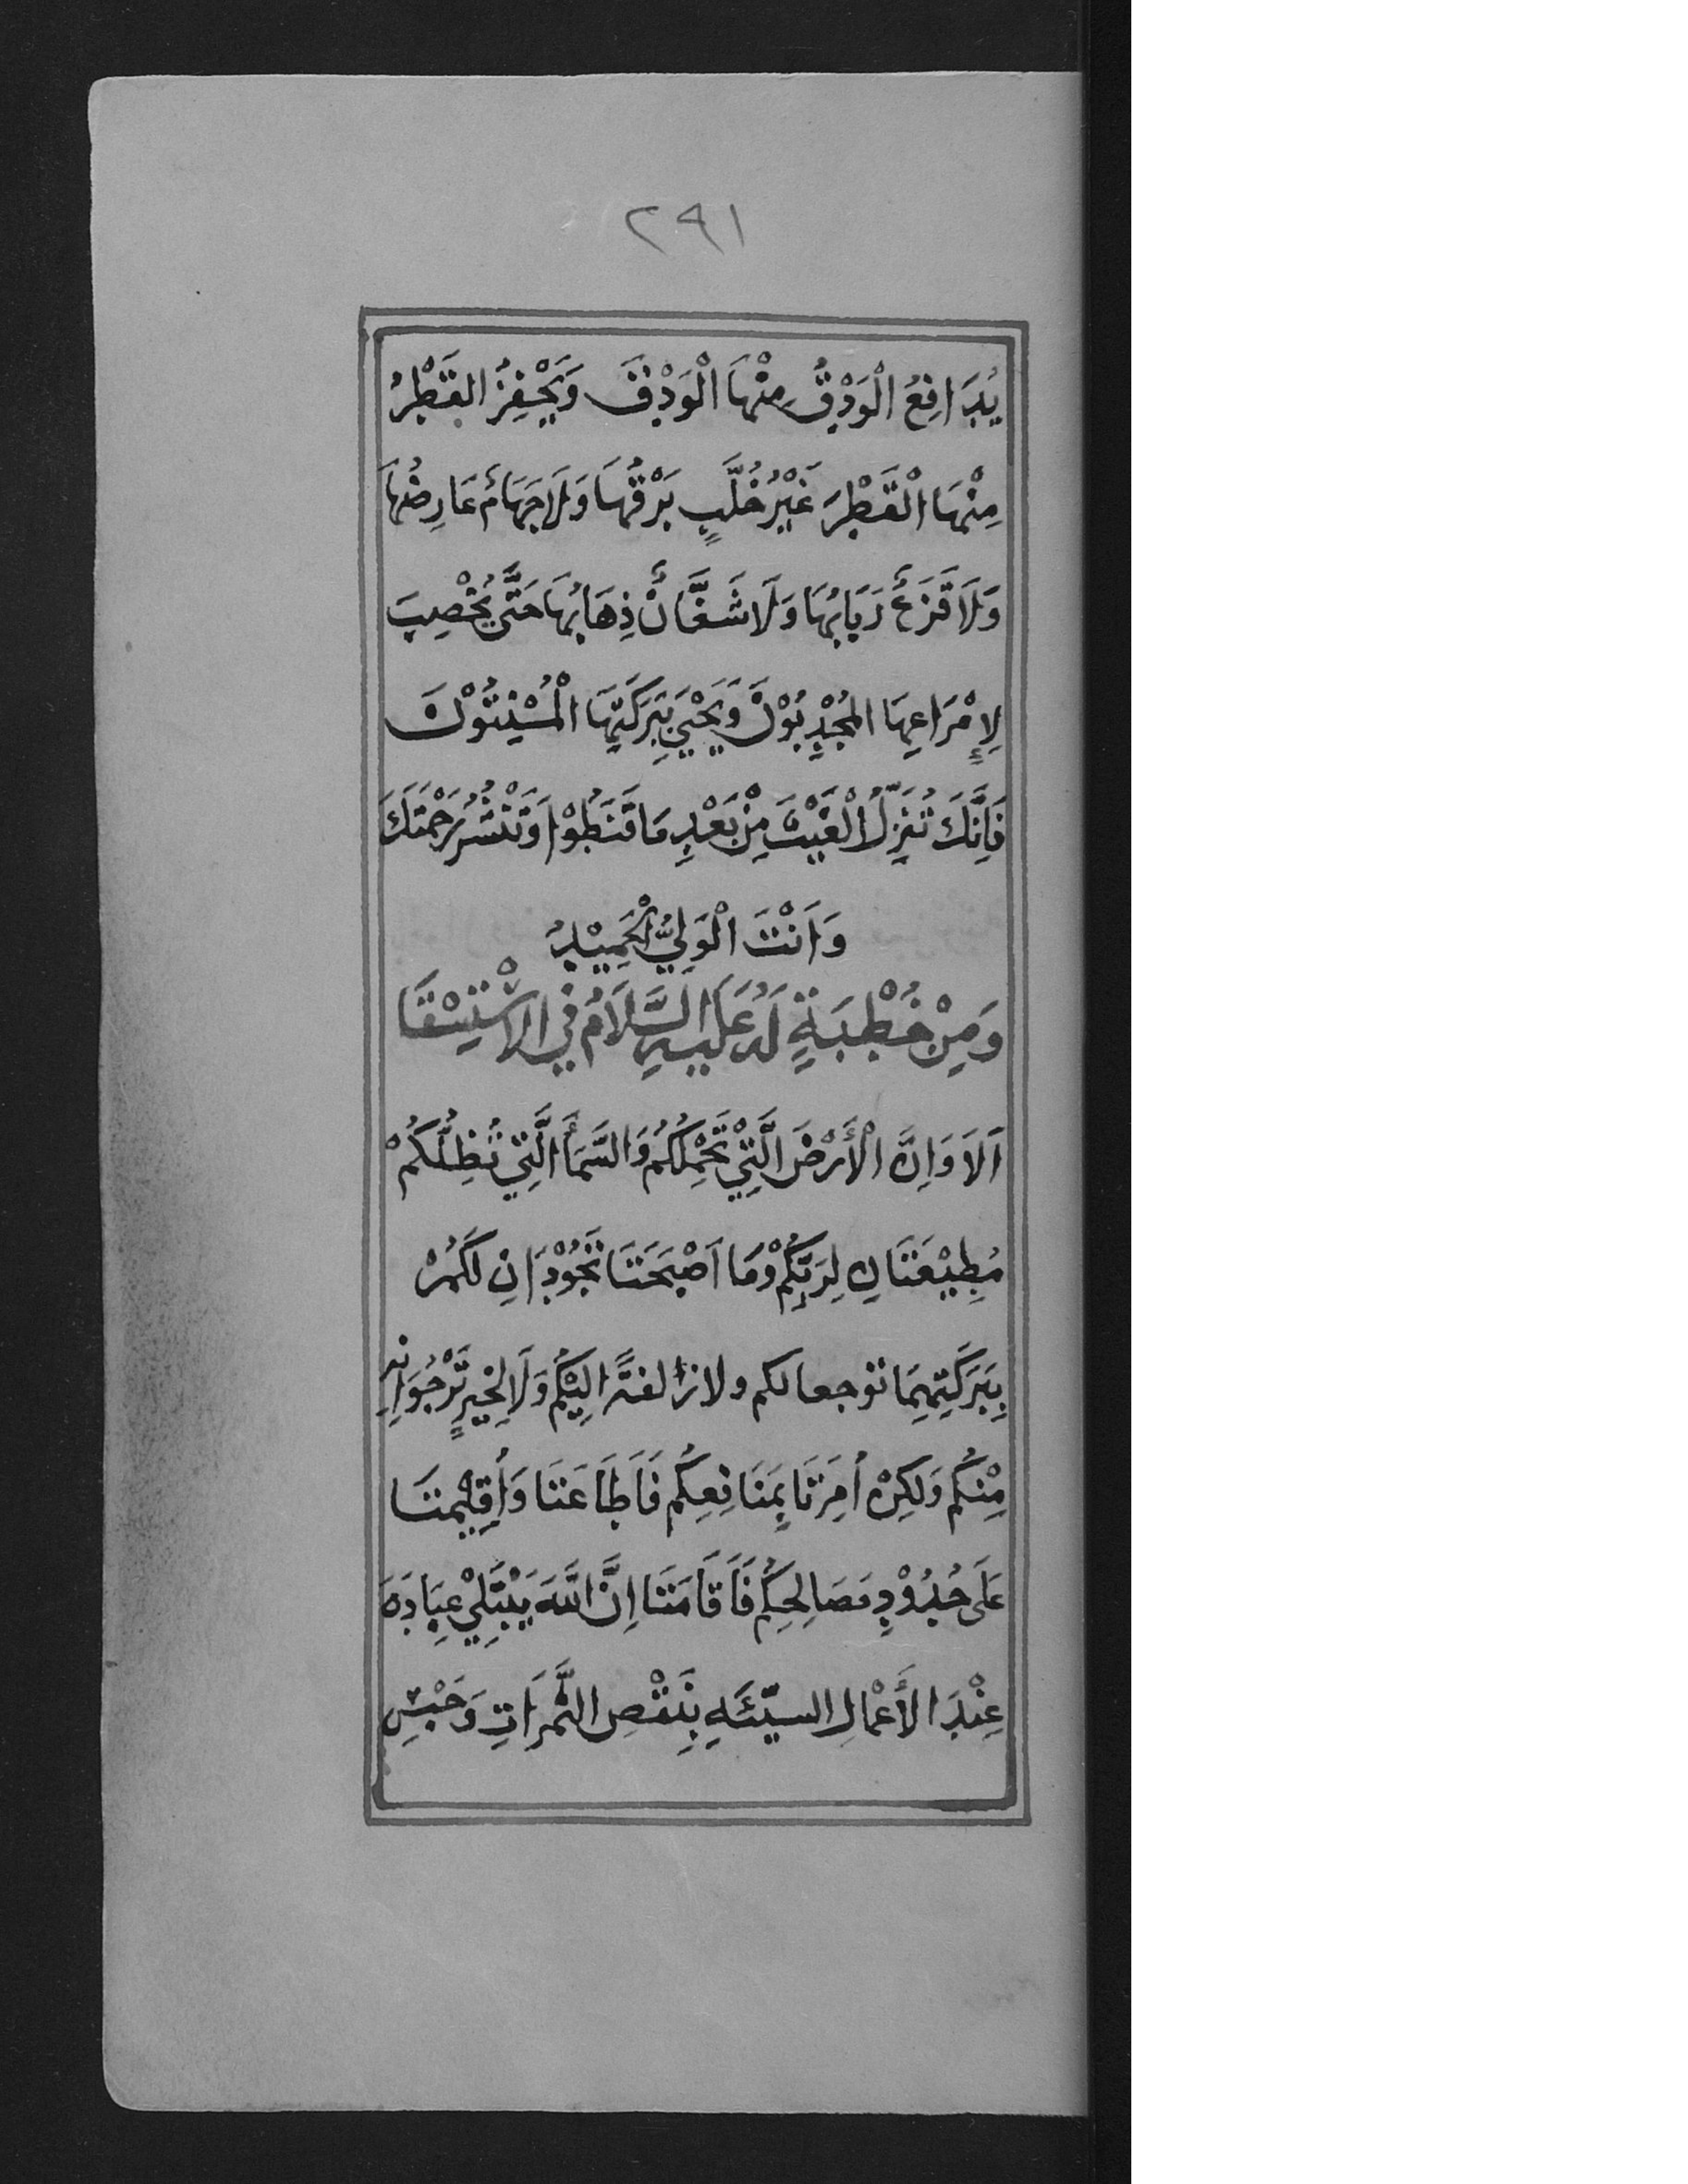 ٢٩١
يُدَافِعُ الْوَدْقُ مِنْهَا الْوَدْقَ وَيَحْفِزُ القَطْرُ
مِنْهَا الْقَطْرَ غَيْرُ خُلَّبٍ بَرْقُهَا وَلَا جَهَامٌ عَارِضُهَا
وَلَا قَزَعٌ رَبَابُهَا وَلَا شَفَّانٌ ذِهَابُهَا حَتَّى يُخْصِبَ
لِإِمْرَاعِهَا المُجْدِبُوْنَ وَيَحْيَيَ بِبَرَكَتِهَا الْمُسْنِتُوْنَ
فَاِنَّكَ تُنَزِّلُ الْغَيْثَ مِنْ بَعْدِ مَا قَنَطُوْا وَتَنْشُرُ رَحْمَتَكَ
وَاَنْتَ الْوَلِيُّ الْحَمِيْدُ
وَمِنْ خُطْبَةٍ لَهُ عَلَيْهِ السَّلَامُ فِي الاسْتِسْقَا
اَلَا وَاِنَّ الْأَرْضَ الَّتِيْ تَحْمِلُكُمْ وَالسَّمَأَ الَّتِيْ تُظِلُّكُمْ
مُطِيْعَتَانِ لِرَبِّكُمْ وَمَا اَصْبَحَتَا تَجُوْدَانِ لَكُمْ
بِبَرَكَتِهِمَا توجعا لكم ولا زُلفةً اِلَيْكُمْ وَلَا لِخَيْرٍ تَرْجُوَانِهِ
مِنْكُمْ وَلَكِنْ اُمِرَتَا بِمَنَافِعِكُم فَاَطَاعَتَا وَأُقِيْمَتَا
عَلَى حُدُوْدِ مَصَالِحِكُم فَاَقَامَتَا اِنَّ اللّٰهَ يَبْتَلِيْ عِبَادَهَ
عِنْدَ الأَعْمَالِ السيّئَهِ بِنَقْصِ الثَّمَرَاتِ وَحَبْسِ